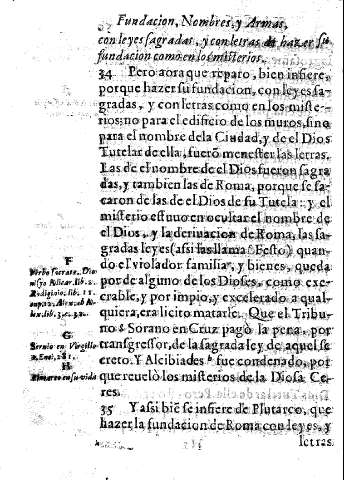 Fundacion, Nombres, y Armas,
con leyes sagradas, y con letras de hazer su
fundacion como en los misterios.
34 Pero aora que reparo, bien infiere,
porque hazer su fundacion, con leyes sa-
gradas, y con letras como en los miste-
rios; no para el edificio de los muros, sino
para el nombre de la Ciudad, y de el Dios
Tutelar de ella, fuerõ menester las letras.
Las de el nombre de el Dios fueron sagra
das, y tambien las de Roma, porque se sa-
caron de las de el Dios de su Tutela: y el
misterio estuuo en ocultar el nombre de
el Dios, y la deriuacion de Roma, las sa-
gradas leyes (assi las llama Festo) quan-
do el violador familia, y bienes, queda
por de algumo de los Dioses, como exe-
crable, y por impio, y excelerado a qual-
quiera, era licito matarle. Que el Tribu-
no Sorano en Cruz pagò la pena, por
transgressor, de la sagrada ley de aquel se
creto. Y Alcibiades fue condenado, por
que reuelò los misterios de la Diosa Ce-
res.
35 Y assi biẽ se infiere de Plutarco, que
hazer la fundacion de Roma con leyes, y
letras.
F
Verbo
lib. 2.
lib. 12.
lib. 3. c. 32.
G
Seruio en Virgilio
2. Enei, 281.
H
Plutarco en su vida